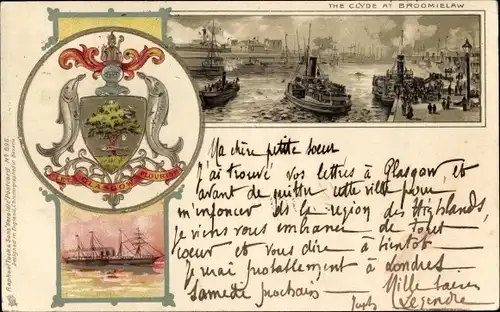 THE CLYDE AT BROOMIELAW
LET GLASGOW FLOURISH
Raphael Tuck & Sons "Heraldic" Postcard Nº 695
Designed in England, Chromographed in Berlin
Ma chère petite soeur
J'ai trouvé vos lettres à Glasgow, et
avant de quitter cette ville pour
m'enfoncer ds la region des Highlands,
je viens vous embrasser de tout
coeur et vous dire à bientôt
je serai probablement à Londres
Samedi prochain
Mille baisers
Legendre